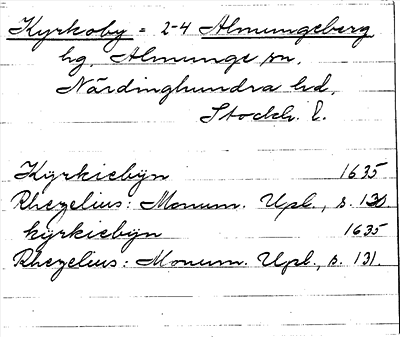 Kyrkoby = 2-4 Almungeberg
hg, Almunge sn,
Närdinghundra hd,
Stockh. l.
Kÿrkiebÿn 1635
Rhezelius: Monum. Upl., s. 130
kÿrkiebÿn 1635
Rhezelius: Monum. Upl., s. 131.